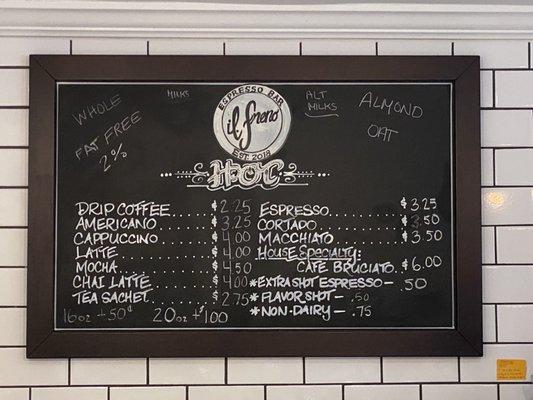 WHOLE
FAT FREE
2%
MILKS
ESPRESSO BAR
il freno
EST. 2013
ALT
MILKS
ALMOND
OAT
HOT
DRIP COFFEE $2.25
AMERICANO $3.25
CAPPUCCINO $4.00
LATTE $4.00
MOCHA $4.50
CHAI LATTE $4.00
TEA SACHET $2.75
16oz +50¢ 20oz +1.00
ESPRESSO $3.25
CORTADO $3.50
MACCHIATO $3.50
HOUSE SPECIALTY:
CAFE BRUCIATO. $6.00
*EXTRA SHOT ESPRESSO - .50
*FLAVOR SHOT - .50
*NON-DAIRY - .75